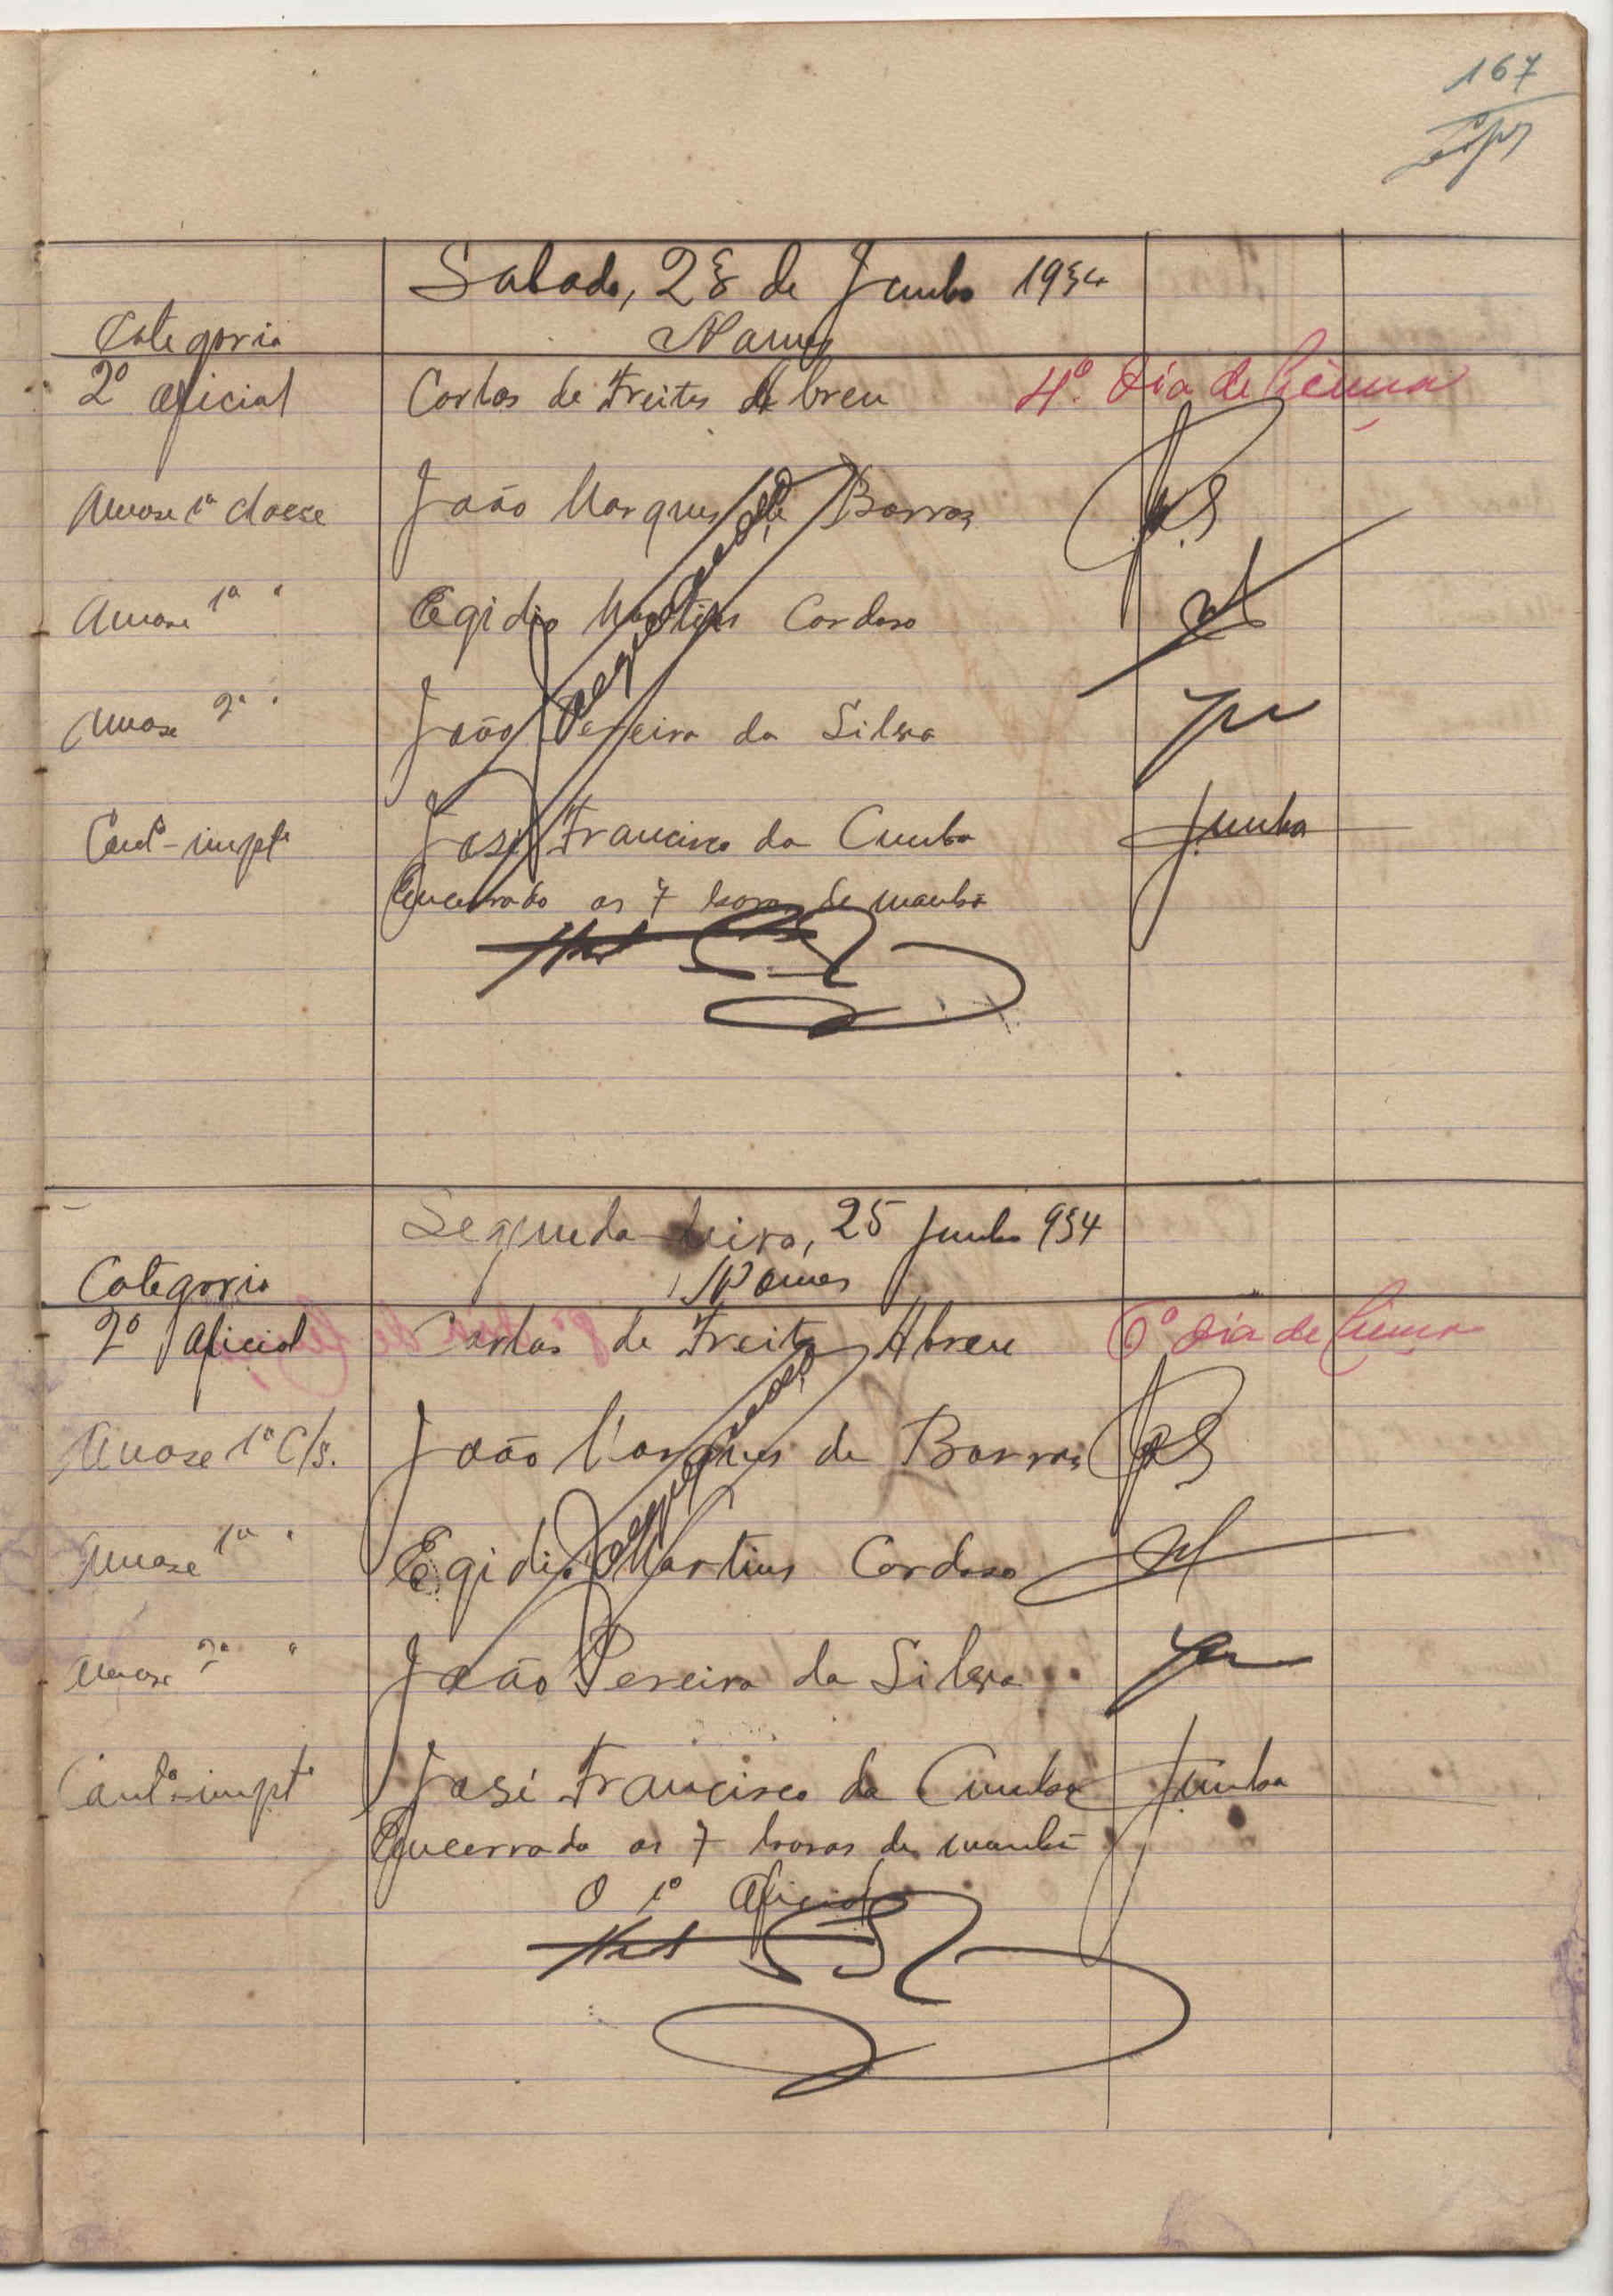 167
Sabado, 23 de Junho 1934
Categoria Nomes
2º oficial Carlos de Freitas Abreu 4º dia de licença
1ª classe João Marques de Barros
1ª " Egidio Martins Cardoso
2ª " João Pereira da Silva
Cantº-impte José Francisco da Cunha JCunha
Encerrado as 7 horas da manhã
Segunda feira, 25 Junho 934
Categoria Nomes
2º oficial Carlos de Freitas Abreu 6º dia de licença
1ª Cls. João Marques de Barros
1ª " Egidio Martins Cardoso
2ª " João Pereira da Silva
Cantº-impte José Francisco da Cunha JCunha
Encerrado as 7 horas da manhã
O 1º Oficial